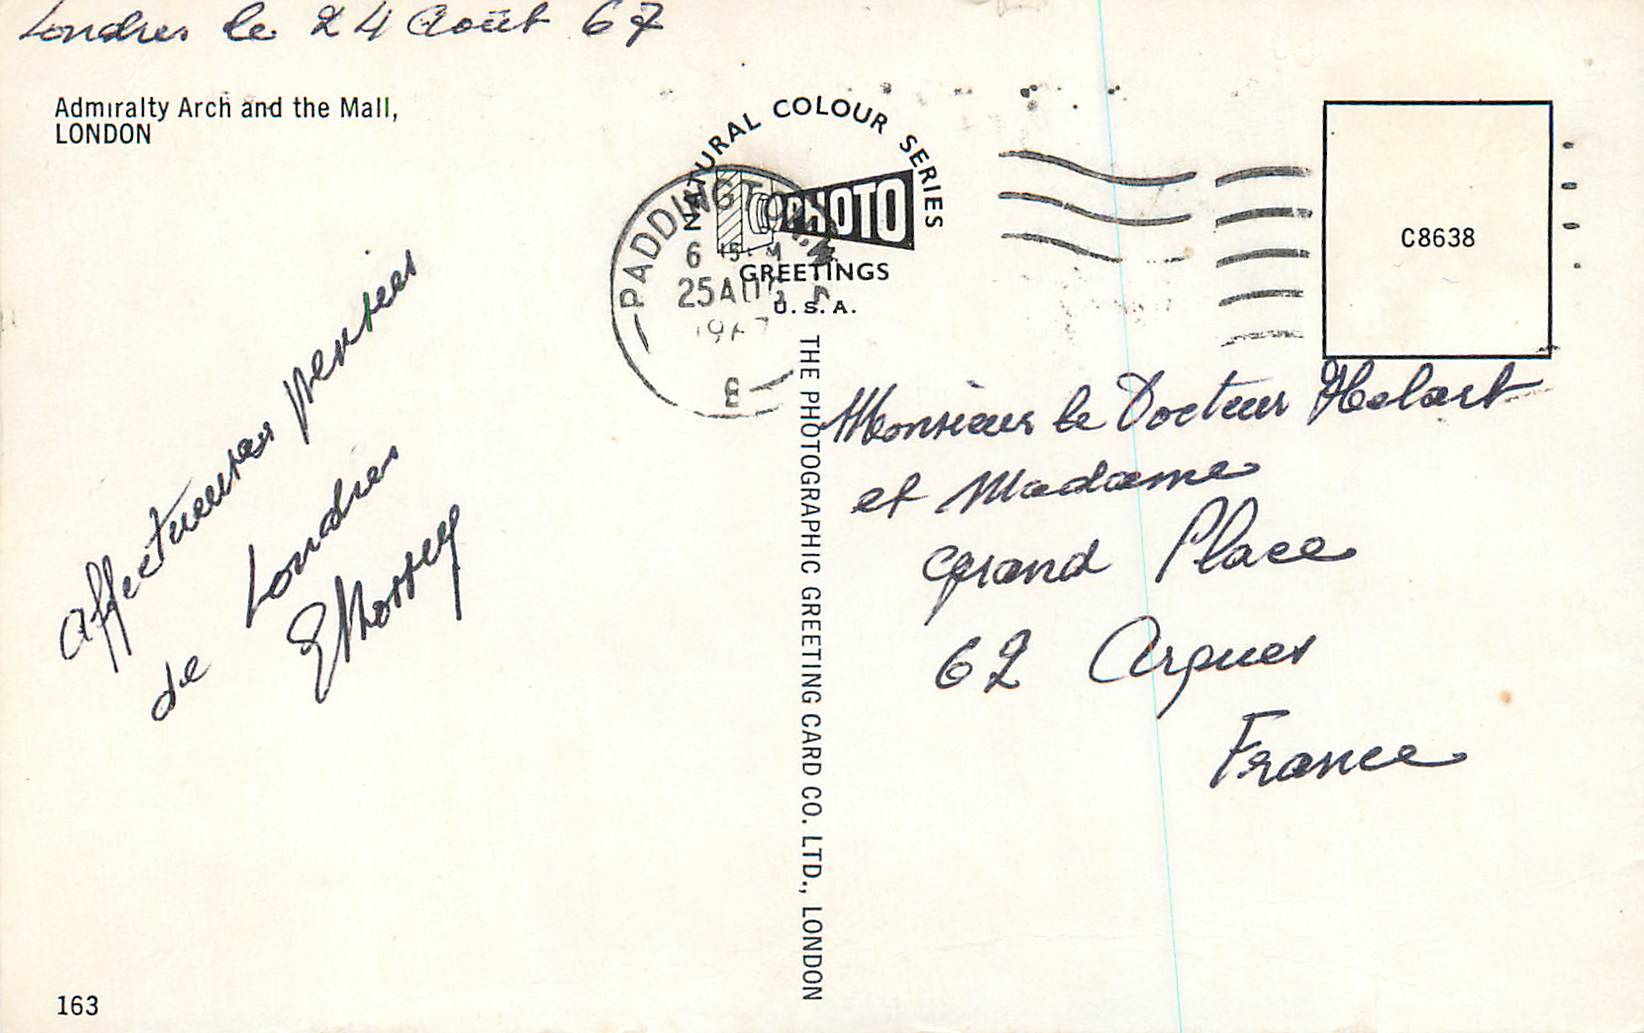 Londres le 24 Août 67
Admiralty Arch and the Mall,
LONDON
NATURAL COLOUR SERIES
PHOTO
GREETINGS
U.S.A.
PADDINGTON
6 15
25 AU
1967
C8638
Affectueuses pensées
de Londres
THE PHOTOGRAPHIC GREETING CARD CO. LTD., LONDON
Monsieur le Docteur Helart
et Madame
Grand Place
62 Arques
France
163